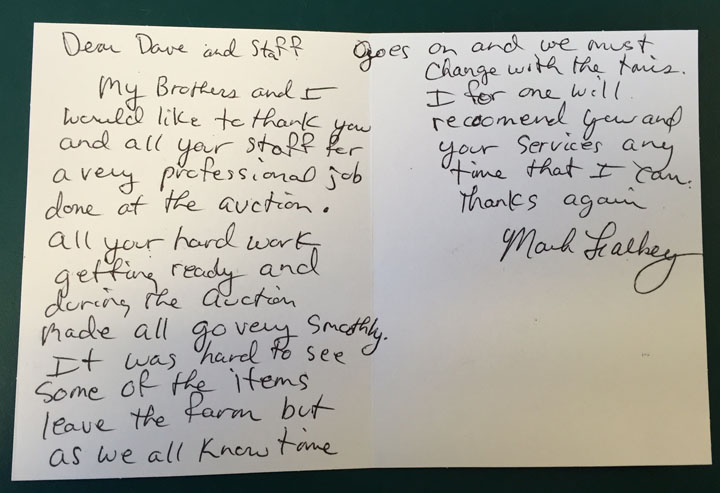 Dear Dave and Staff
My Brothers and I
would like to thank you
and all your staff for
a very professional job
done at the auction.
all your hard work
getting ready and
during the auction
made all go very smothly.
It was hard to see
some of the items
leave the farm but
as we all know time
goes on and we must
Change with the
I for one will
recoomend you and
your services any
time that I can.
Thanks again
Mark